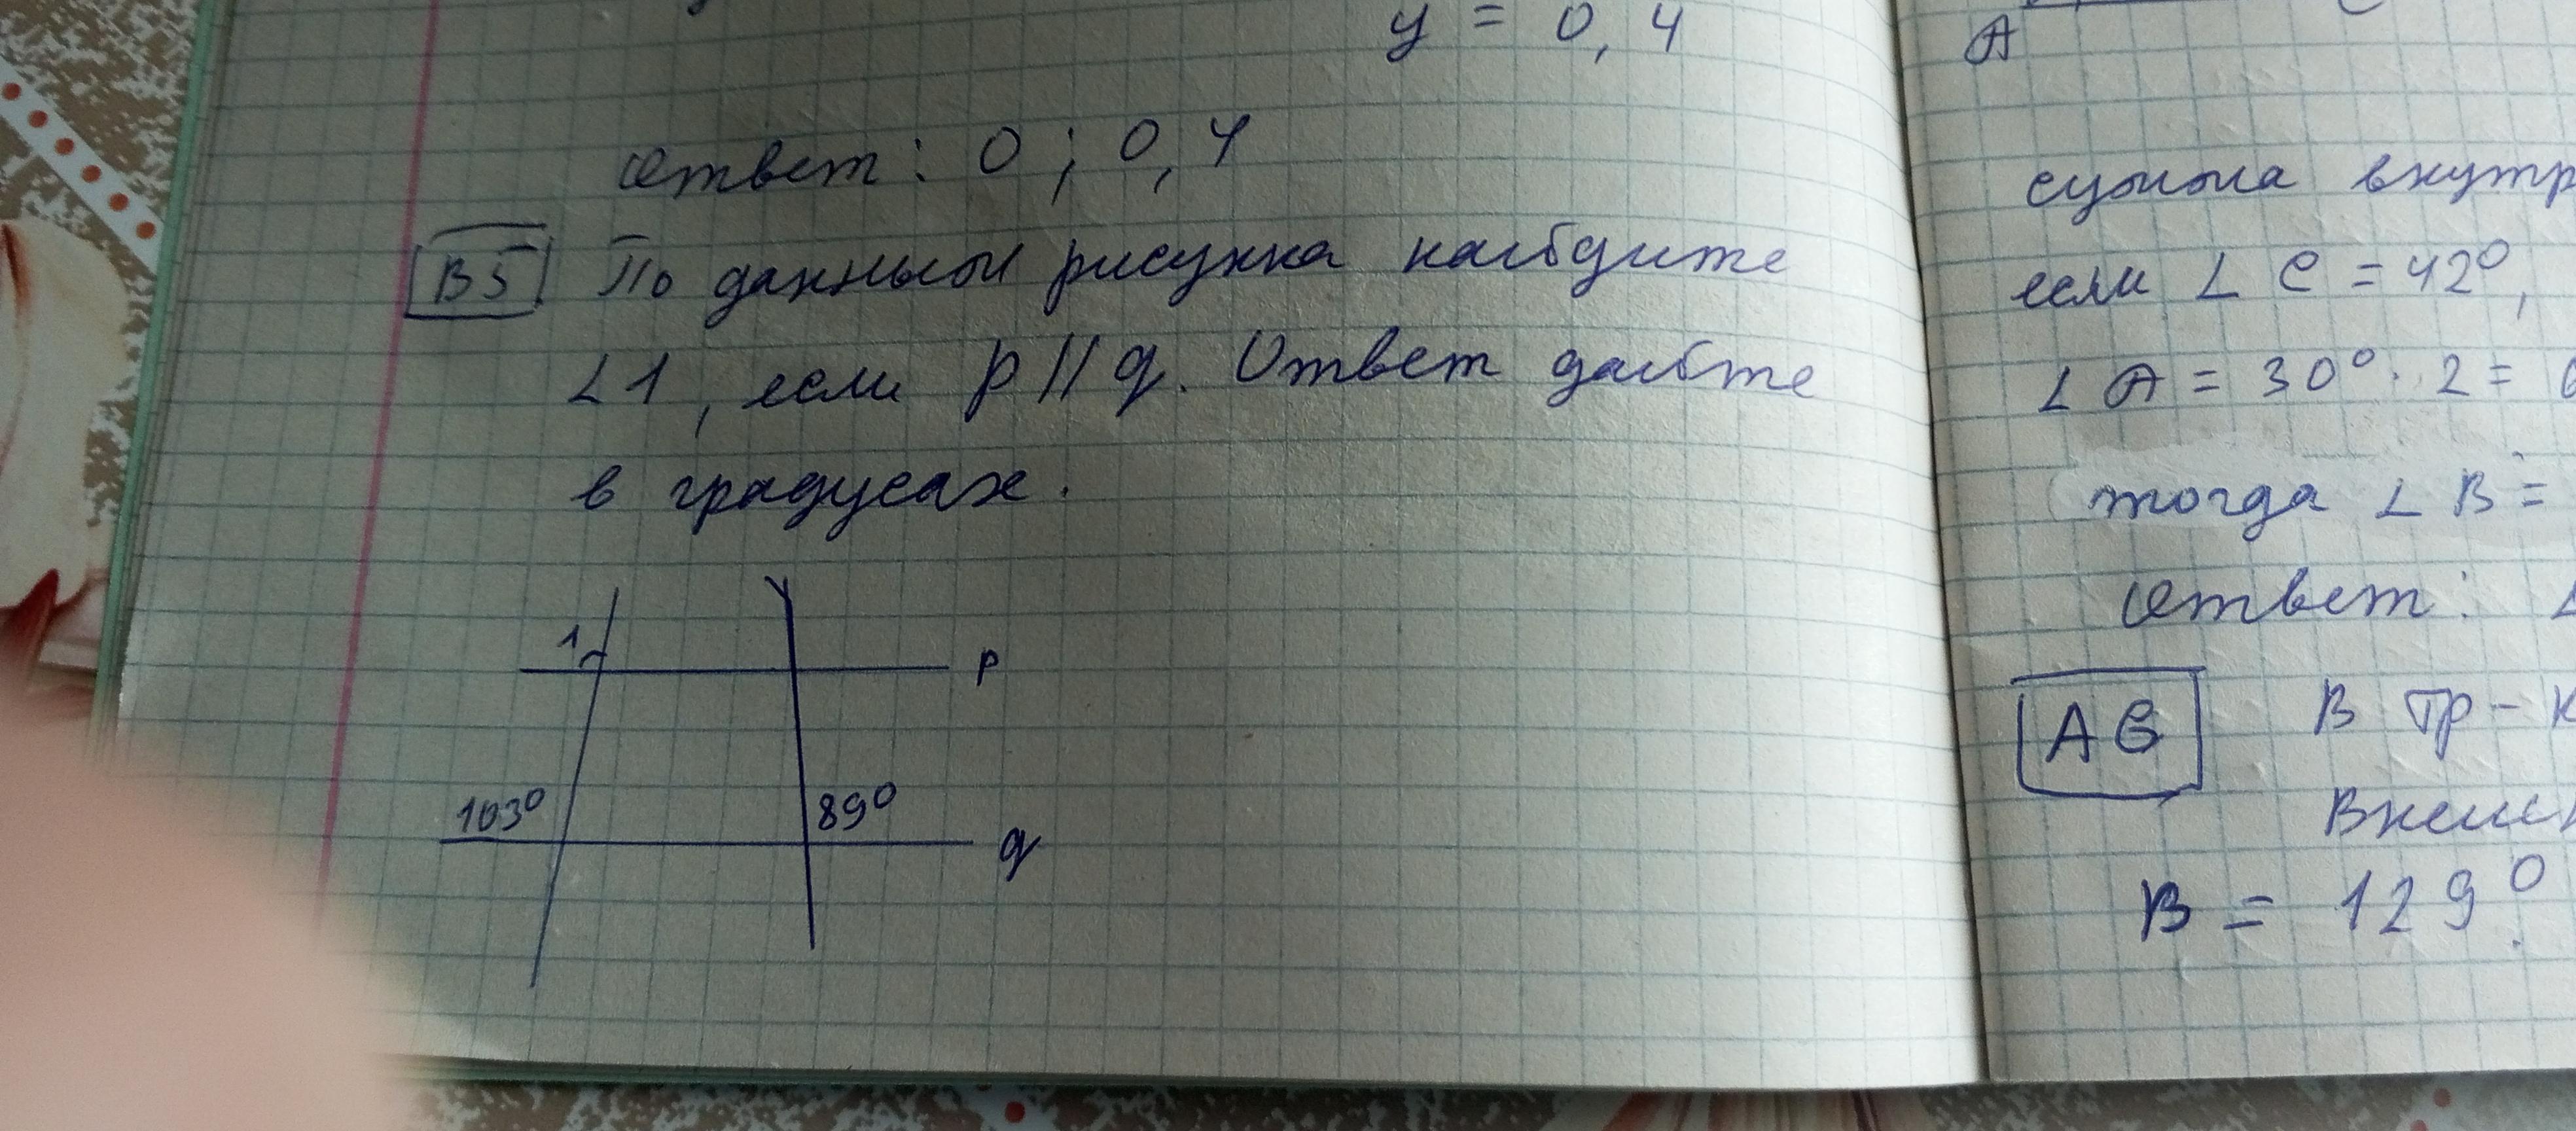 y = 0,4
Ответ: 0; 0,4
В5 По данным рисунка найдите
∠1, если p || q. Ответ дайте
в градусах.
1
p
103° 89°
q
A
сумма внутр
если ∠ C = 42°,
∠ A = 30° · 2 =
тогда ∠ B =
Ответ:
А6 В тр-к
Внеш
B = 129°